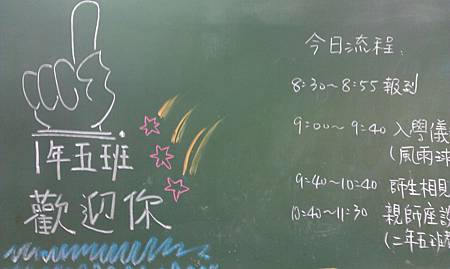 1年五班
歡迎你
今日流程:
8:30~8:55 報到
9:00~9:40 入學儀
(風雨球
9:40~10:40 師生相見
10:40~11:30 親師座談
(二年五班